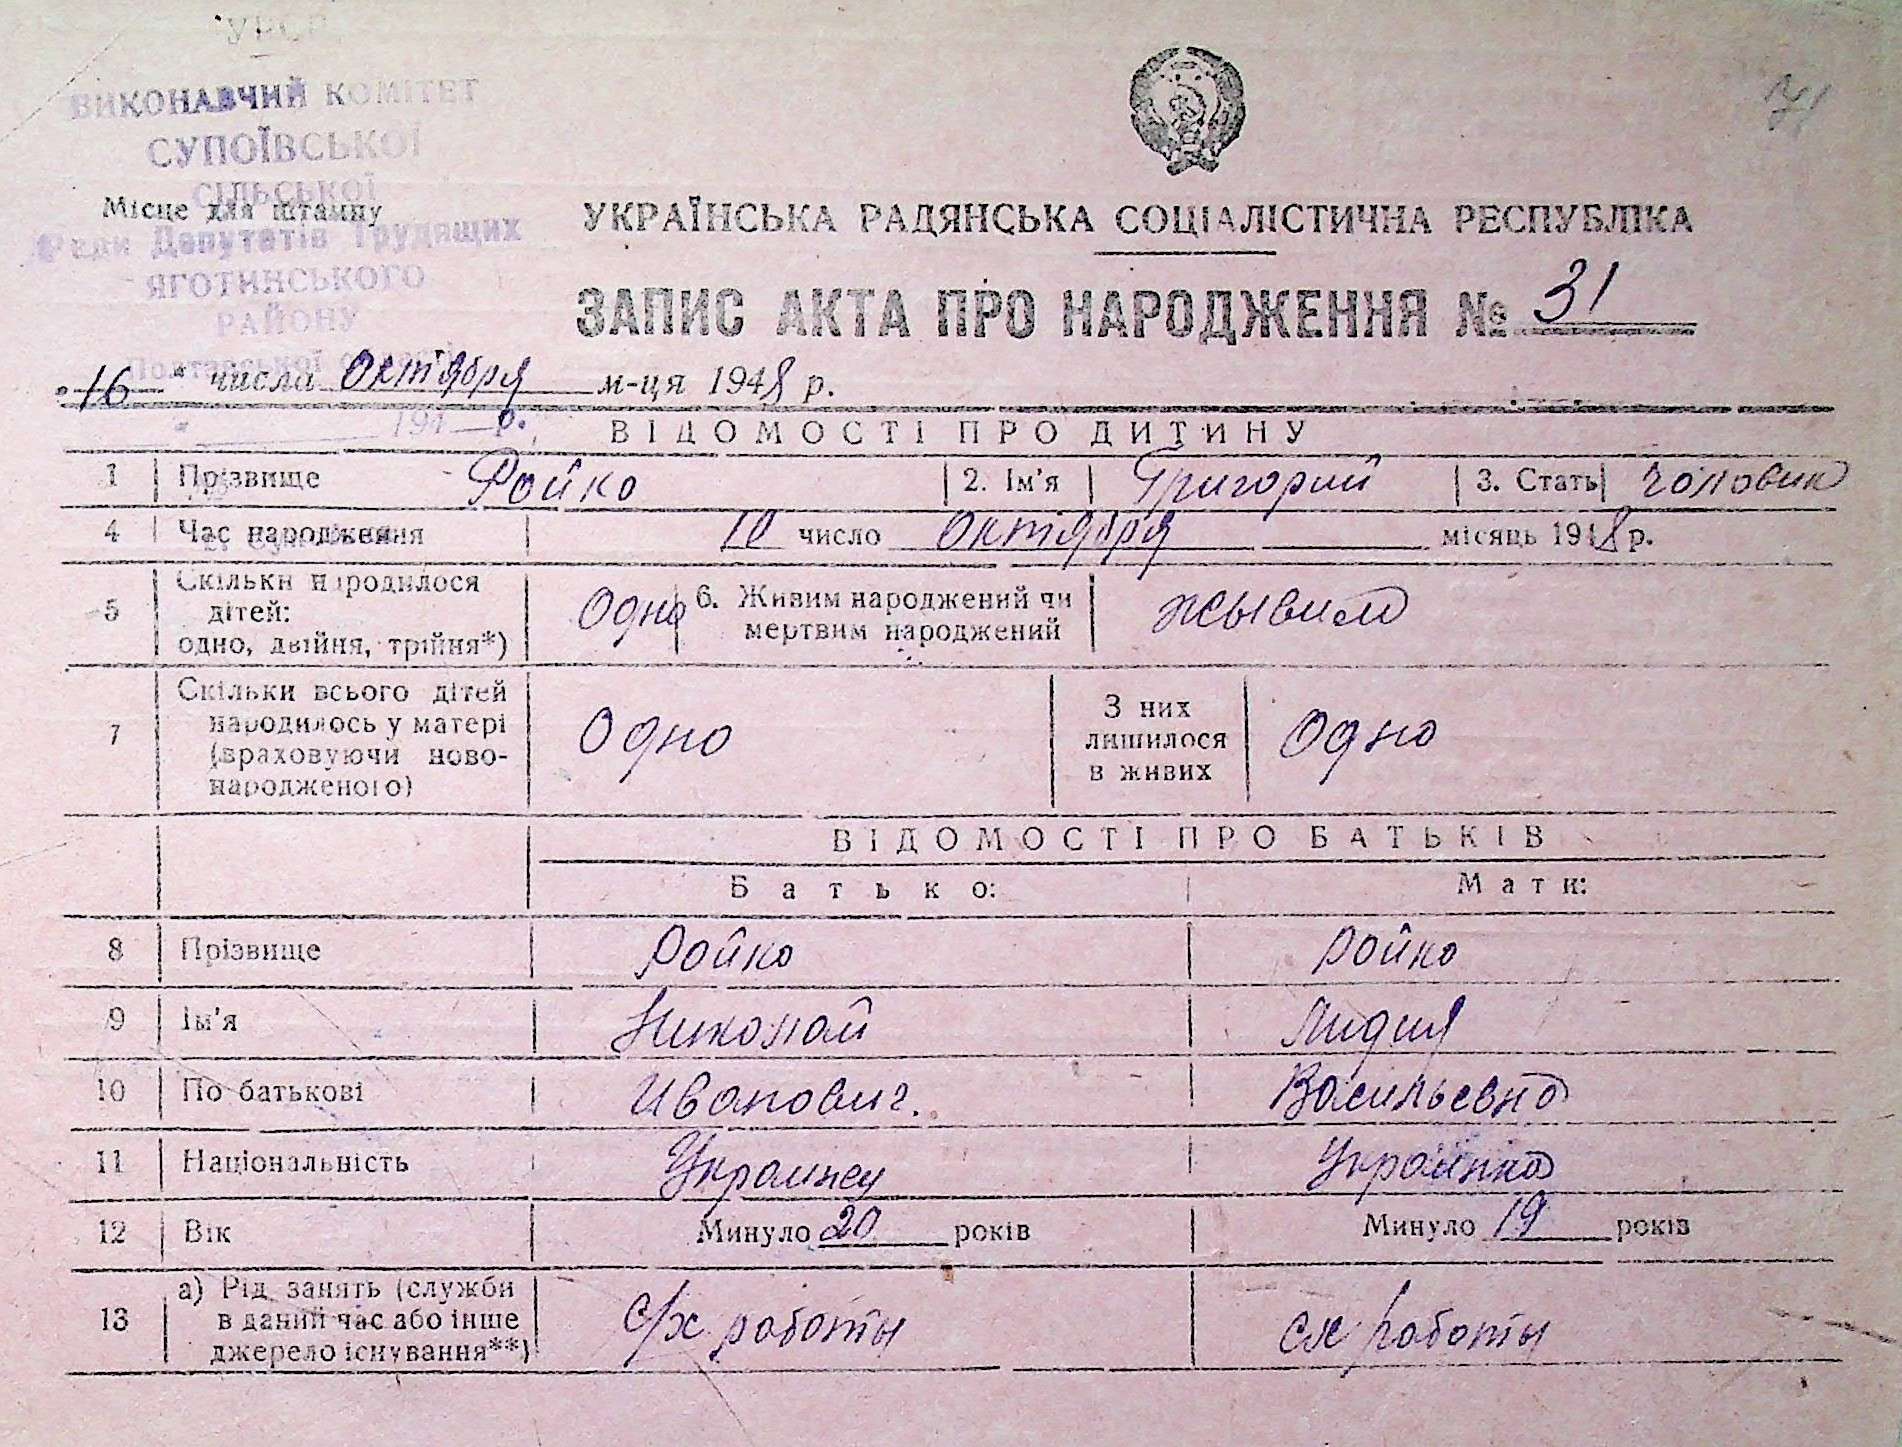 УРСР
ВИКОНАВЧИЙ КОМІТЕТ
СУПОЇВСЬКОЇ
СІЛЬСЬКОЇ
Місце для штампу
Ради Депутатів Трудящих
ЯГОТИНСЬКОГО
РАЙОНУ
Полтавської
194 р.
71
УКРАЇНСЬКА РАДЯНСЬКА СОЦІАЛІСТИЧНА РЕСПУБЛІКА
ЗАПИС АКТА ПРО НАРОДЖЕННЯ № 31
„16“ числа Октября м-ця 1948 р.
ВІДОМОСТІ ПРО ДИТИНУ
1 Прізвище Ройко 2. Ім'я Григорий 3. Стать чоловик
4 Час народження 10 число Октября місяць 1948 р.
5 Скільки народилося
дітей:
одно, двійня, трійня*) Одно 6. Живим народжений чи
мертвим народжений жывим
7 Скільки всього дітей
народилось у матері
(враховуючи ново-
народженого) Одно З них
лишилося
в живих Одно
ВІДОМОСТІ ПРО БАТЬКІВ
Батько: Мати:
8 Прізвище Ройко Ройко
9 Ім'я Николай Лидия
10 По батькові Иванович. Васильевна
11 Національність Украинец Украінка
12 Вік Минуло 20 років Минуло 19 років
13 а) Рід занять (служби
в даний час або інше
джерело існування**) с/х работы сх работы